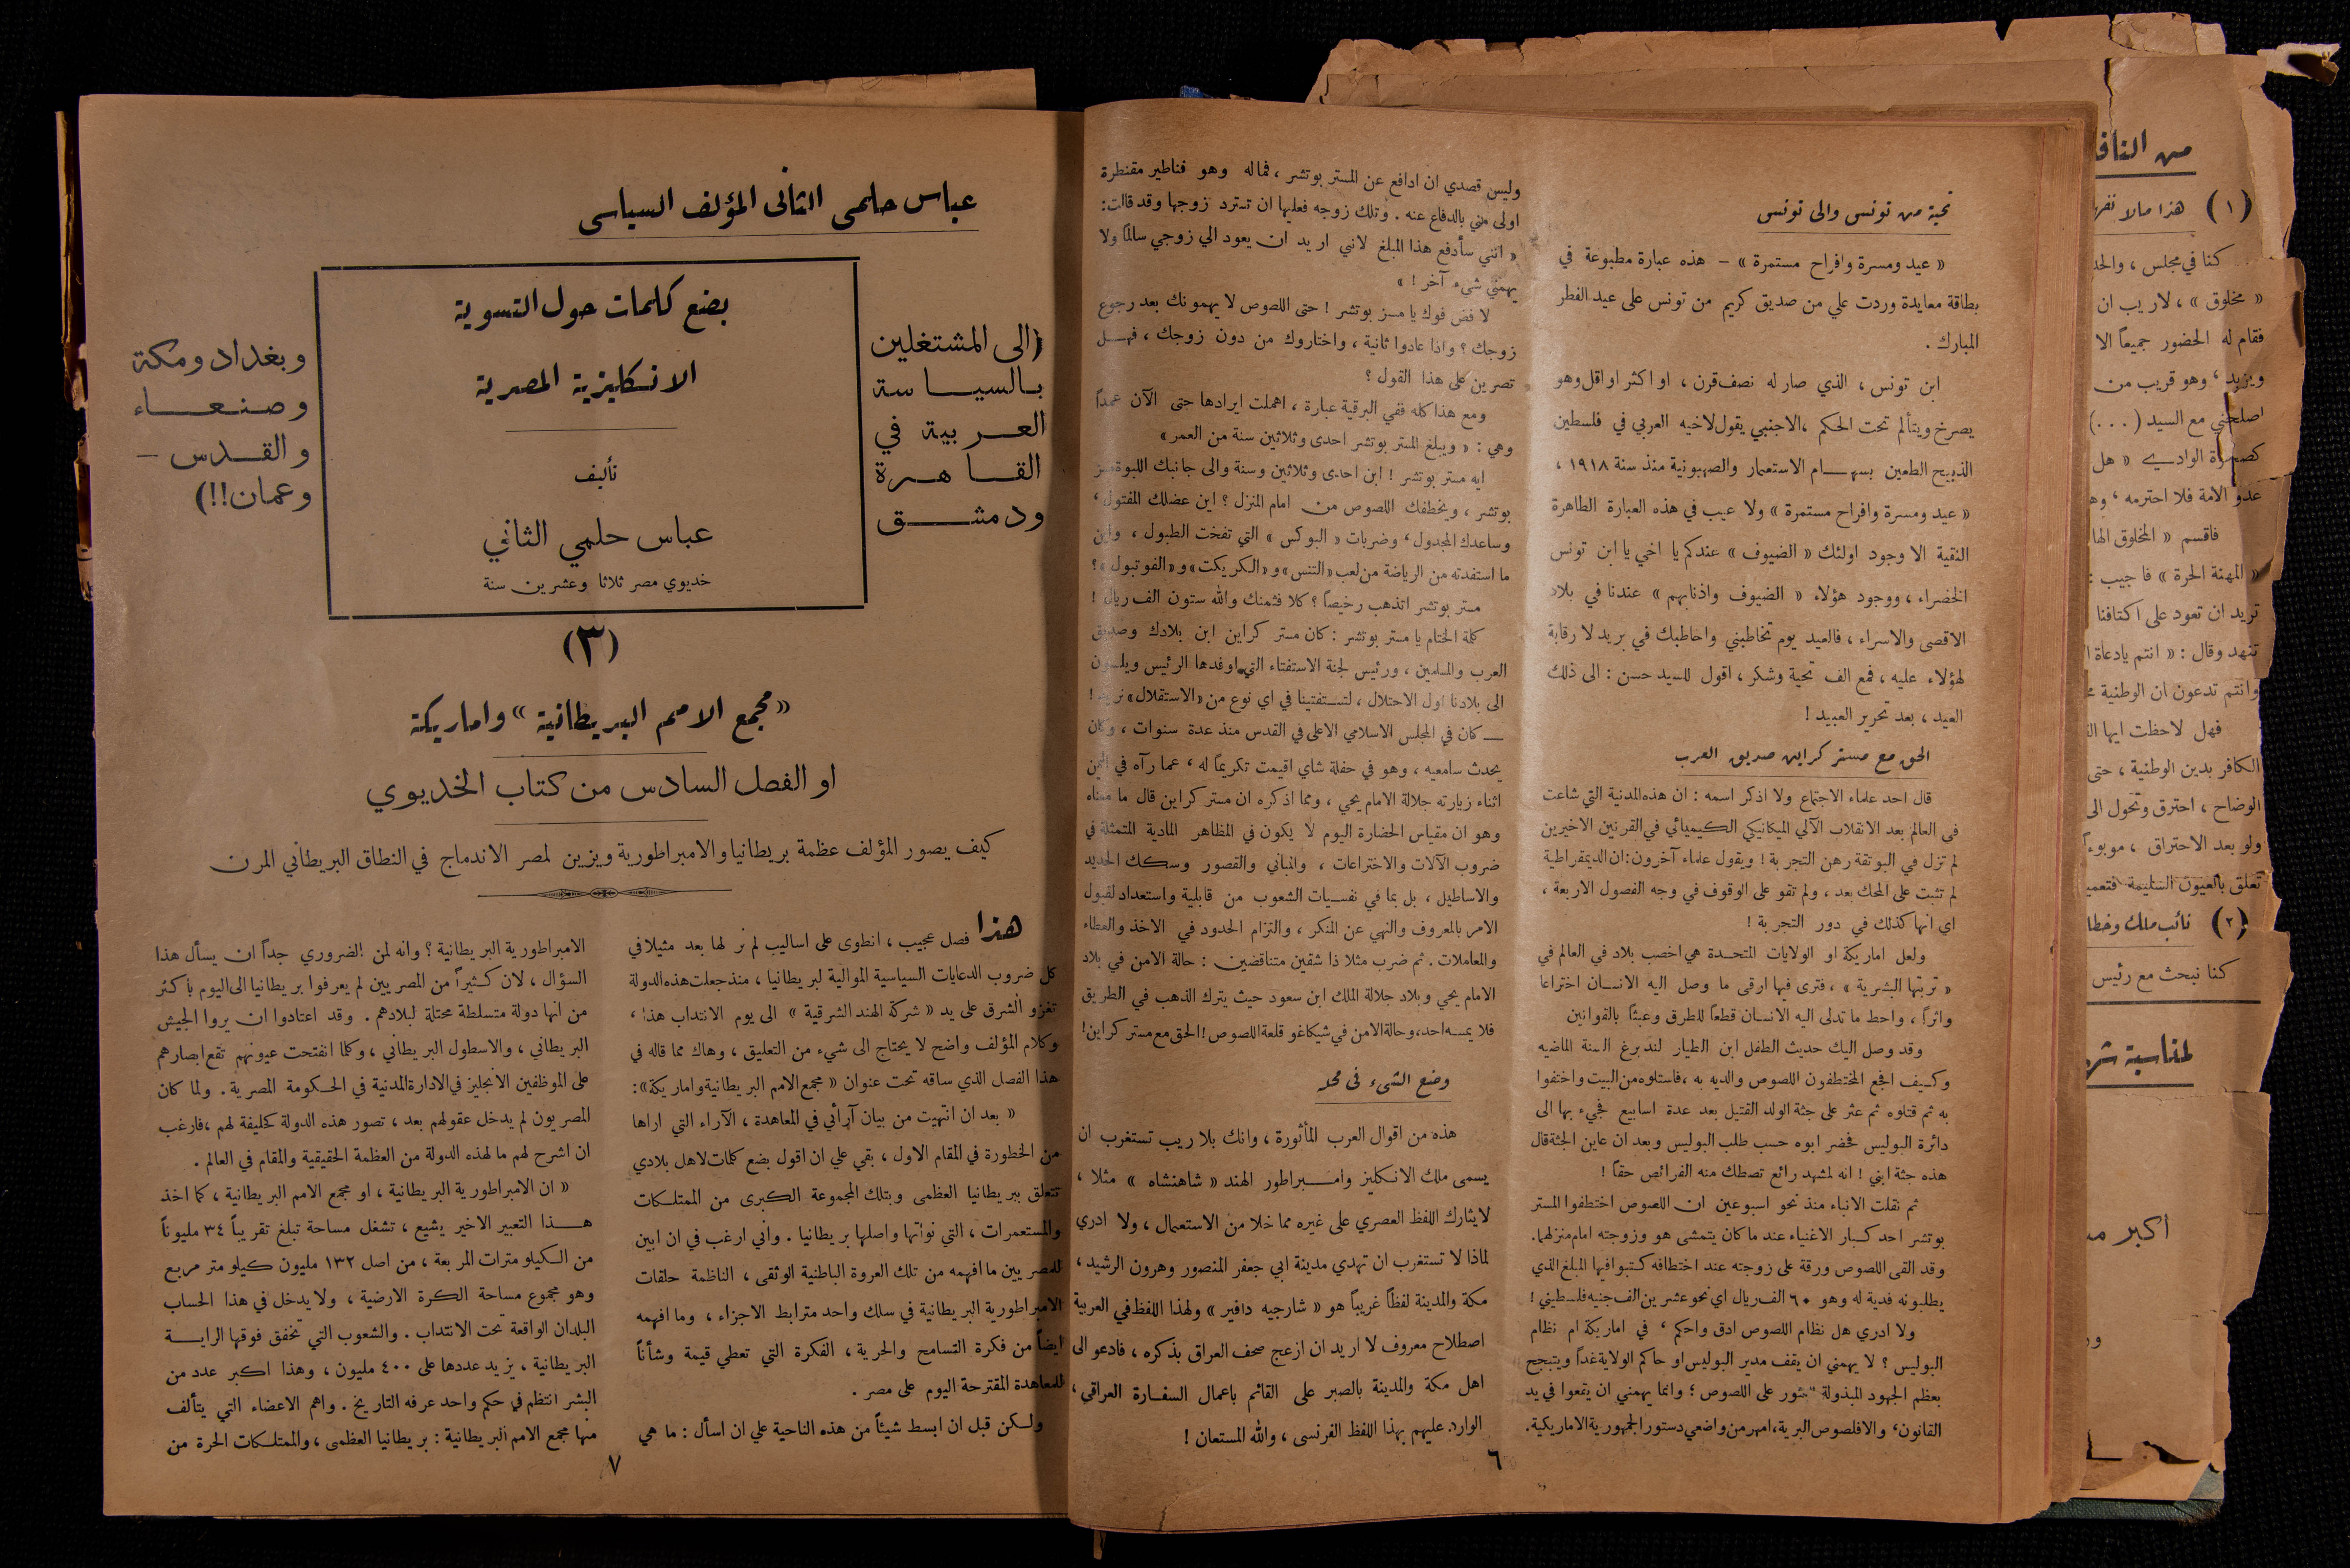 تحية من تونس والى تونس
« عيد ومسرة وافراح مستمرة » – هذه عبارة مطبوعة في
بطاقة معايدة وردت علي من صديق كريم من تونس على عيد الفطر
المبارك .
ابن تونس ، الذي صار له نصف قرن ، او اكثر او اقل وهو
يصرخ ويتألم تحت الحكم ، الاجنبي يقول لاخيه العربي في فلسطين
الذبيح الطعين بسهام الاستعمار والصهيونية منذ سنة ١٩١٨ ،
« عيد ومسرة وافراح مستمرة » ولا عيب في هذه العبارة الطاهرة
النقية الا وجود اولئك « الضيوف » عندكم يا اخي يا ابن تونس
الخضراء ، ووجود هؤلاء « الضيوف واذنابهم » عندنا في بلاد
الاقصى والاسراء ، فالعيد يوم تخاطبني واخاطبك في بريد لا رقابة
لهؤلاء عليه ، فمع الف تحية وشكر ، اقول للسيد حسن : الى ذلك
العيد ، بعد تحرير العبيد !
الحق مع مستر كراين صديق العرب
قال احد علماء الاجتماع ولا اذكر اسمه : ان هذه المدنية التي شاعت
في العالم بعد الانقلاب الآلي الميكانيكي الكيميائي في القرنين الاخيرين
لم تزل في البوتقة رهن التجربة ! ويقول علماء آخرون : ان الديمقراطية
لم تثبت على المحك بعد ، ولم تقو على الوقوف في وجه الفصول الاربعة ،
اي انها كذلك في دور التجربة !
ولعل اماريكة او الولايات المتحدة هي اخصب بلاد في العالم في
« تربتها البشرية » ، فترى فيها ارقى ما وصل اليه الانسان اختراعا
واثراً ، واحط ما تدلى اليه الانسان قطعاً للطرق وعبثاً بالقوانين
وقد وصل اليك حديث الطفل ابن الطيار لندبرغ السنة الماضيه
وكيف افجع المختطفون اللصوص والديه به ، فاستلوه من البيت واختفوا
به ثم قتلوه ثم عثر على جثة الولد القتيل بعد عدة اسابيع فجيء بها الى
دائرة البوليس فحضر ابوه حسب طلب البوليس وبعد ان عاين الجثة قال
هذه جثة ابني ! انه لمشهد رائع تصطك منه الفرائص حقاً !
ثم نقلت الانباء منذ نحو اسبوعين ان اللصوص اختطفوا المستر
بوتشر احد كبار الاغنياء عند ما كان يتمشى هو وزوجته امام منزلهما .
وقد القى اللصوص ورقة على زوجته عند اختطافه كتبوا فيها المبلغ الذي
يطلبونه فدية له وهو ٦٠ الف ريال اي نحو عشرين الف جنيه فلسطيني !
ولا ادري هل نظام اللصوص ادق واحكم ، في اماريكة ام نظام
البوليس ؟ لا يهمني ان يقف مدير البوليس او حاكم الولاية غداً ويتبجح
بعظم الجهود المبذولة للعثور على اللصوص ؛ وانما يهمني ان يقعوا في يد
القانون ، والا فلصوص البرية ، امهر من واضعي دستور الجمهورية الاماريكية .
وليس قصدي ان ادافع عن المستر بوتشر ، فماله وهو قناطير مقنطرة
اولى مني بالدفاع عنه . وتلك زوجه فعليها ان تسترد زوجها وقد قالت :
« انني سأدفع هذا المبلغ لاني اريد ان يعود الي زوجي سالماً ولا
يهمني شيء آخر ! »
لا فض فوك يا مسز بوتشر ! حتى اللصوص لا يهمونك بعد رجوع
زوجك ؟ واذا عادوا ثانية ، واختاروك من دون زوجك ، فهل
تصرين على هذا القول ؟
ومع هذا كله ففي البرقية عبارة ، اهملت ايرادها حتى الآن عمداً
وهي : « ويبلغ المستر بوتشر احدى وثلاثين سنة من العمر »
ايه مستر بوتشر ! ابن احدى وثلاثين وسنة والى جانبك اللبوة مسز
بوتشر ، ويخطفك اللصوص من امام المنزل ؟ اين عضلك المفتول ،
وساعدك المجدول ، وضربات « البوكس » التي تفخت الطبول ، واين
ما استفدته من الرياضة من لعب « التنس » و « الكريكت » و « الفوتبول » ؟
مستر بوتشر اتذهب رخيصاً ؟ كلا فثمنك والله ستون الف ريال !
كلمة الختام يا مستر بوتشر : كان مستر كراين ابن بلادك وصديق
العرب والمسلمين ، ورئيس لجنة الاستفتاء التي اوفدها الرئيس ويلسون
الى بلادنا اول الاحتلال ، لتستفتينا في اي نوع من « الاستقلال » نريد !
— كان في المجلس الاسلامي الاعلى في القدس منذ عدة سنوات ، وكان
يحدث سامعيه ، وهو في حفلة شاي اقيمت تكريماً له ، عما رآه في اليمن
اثناء زيارته جلالة الامام يحي ، ومما اذكره ان مستر كراين قال ما معناه
وهو ان مقياس الحضارة اليوم لا يكون في المظاهر المادية المتمثلة في
ضروب الآلات والاختراعات ، والمباني والقصور وسكك الحديد
والاساطيل ، بل بما في نفسيات الشعوب من قابلية واستعداد لقبول
الامر بالمعروف والنهي عن المنكر ، والتزام الحدود في الاخذ والعطاء
والمعاملات . ثم ضرب مثلا ذا شقين متناقضين : حالة الامن في بلاد
الامام يحي وبلاد جلالة الملك ابن سعود حيث يترك الذهب في الطريق
فلا يمسه احد ، وحالة الامن في شيكاغو قلعة اللصوص ! الحق مع مستر كراين !
وضع الشيء في محله
هذه من اقوال العرب المأثورة ، وانك بلا ريب تستغرب ان
يسمى ملك الانكليز وامبراطور الهند « شاهنشاه » مثلا ،
لايثارك اللفظ العصري على غيره مما خلا من الاستعمال ، ولا ادري
لماذا لا تستغرب ان تهدي مدينة ابي جعفر المنصور وهرون الرشيد ،
مكة والمدينة لفظاً غريباً هو « شارجيه دافير » ولهذا اللفظ في العربية
اصطلاح معروف لا اريد ان ازعج صحف العراق بذكره ، فادعو الى
اهل مكة والمدينة بالصبر على القائم باعمال السفارة العراقي ،
الوارد عليهم بهذا اللفظ الفرنسي ، والله المستعان !
٦
عباس حلمى الثانى المؤلف السياسى
(الى المشتغلين
بالسياسة
العربية في
القاهرة
ودمشق
بضع كلمات حول التسوية
الانكليزية المصرية
تأليف
عباس حلمي الثاني
خديوي مصر ثلاثا وعشرين سنة
وبغداد ومكة
وصنعاء
والقدس –
وعمان !!)
(٣)
« مجمع الامم البريطانية » واماريكة
او الفصل السادس من كتاب الخديوي
كيف يصور المؤلف عظمة بريطانيا والامبراطورية ويزين لمصر الاندماج في النطاق البريطاني المرن
هذا فصل عجيب ، انطوى على اساليب لم نر لها بعد مثيلا في
كل ضروب الدعايات السياسية الموالية لبريطانيا ، منذ جعلت هذه الدولة
تغزو الشرق على يد « شركة الهند الشرقية » الى يوم الانتداب هذا ،
وكلام المؤلف واضح لا يحتاج الى شيء من التعليق ، وهاك مما قاله في
هذا الفصل الذي ساقه تحت عنوان « مجمع الامم البريطانية واماريكة » :
« بعد ان انتهيت من بيان آرائي في المعاهدة ، الآراء التي اراها
من الخطورة في المقام الاول ، بقي علي ان اقول بضع كلمات لاهل بلادي
تتعلق ببريطانيا العظمى وبتلك المجموعة الكبرى من الممتلكات
والمستعمرات ، التي نواتها واصلها بريطانيا . واني ارغب في ان ابين
للمصريين ما افهمه من تلك العروة الباطنية الوثقى ، الناظمة حلقات
الامبراطورية البريطانية في سلك واحد مترابط الاجزاء ، وما افهمه
ايضاً من فكرة التسامح والحرية ، الفكرة التي تعطي قيمة وشأناً
للمعاهدة المقترحة اليوم على مصر .
ولكن قبل ان ابسط شيئاً من هذه الناحية علي ان اسأل : ما هي
الامبراطورية البريطانية ؟ وانه لمن الضروري جداً ان يسأل هذا
السؤال ، لان كثيراً من المصريين لم يعرفوا بريطانيا الى اليوم باكثر
من انها دولة متسلطة محتلة لبلادهم . وقد اعتادوا ان يروا الجيش
البريطاني ، والاسطول البريطاني ، وكلما انفتحت عيونهم تقع ابصارهم
على الموظفين الانجليز في الادارة المدنية في الحكومة المصرية . ولما كان
المصريون لم يدخل عقولهم بعد ، تصور هذه الدولة كحليفة لهم ، فارغب
ان اشرح لهم ما لهذه الدولة من العظمة الحقيقية والمقام في العالم .
« ان الامبراطورية البريطانية ، او مجمع الامم البريطانية ، كما اخذ
هذا التعبير الاخير يشيع ، تشغل مساحة تبلغ تقريباً ٣٤ مليوناً
من الكيلو مترات المربعة ، من اصل ١٣٢ مليون كيلو متر مربع
وهو مجموع مساحة الكرة الارضية ، ولا يدخل في هذا الحساب
البلدان الواقعة تحت الانتداب . والشعوب التي تخفق فوقها الراية
البريطانية ، يزيد عددها على ٤٠٠ مليون ، وهذا اكبر عدد من
البشر انتظم في حكم واحد عرفه التاريخ . واهم الاعضاء التي يتألف
منها مجمع الامم البريطانية : بريطانيا العظمى ، والممتلكات الحرة من
٧
من النافذة
(١) هذا مالا
كنا في مجلس ،
« مخلوق » ، لا ريب ان
فقام له الحضور جميعاً الا
ويزيد ، وهو قريب من
اصلحني مع السيد (...)
الوادي « هل
عدو الامة فلا احترمه ،
فاقسم « المخلوق
« المهنة الحرة » فاجيب :
تريد ان تعود على اكتافنا
تنهد وقال : « انتم يا دعاة
وانتم تدعون ان الوطنية
فهل لاحظت ايها
الكافر بدين الوطنية ، حتى
الوضاح ، احترق وتحول الى
ولو بعد الاحتراق ،
تعلق بالعيون السليمة
(٢) نائب ملك
كنا نبحث مع رئيس
لمناسبة
اكبر